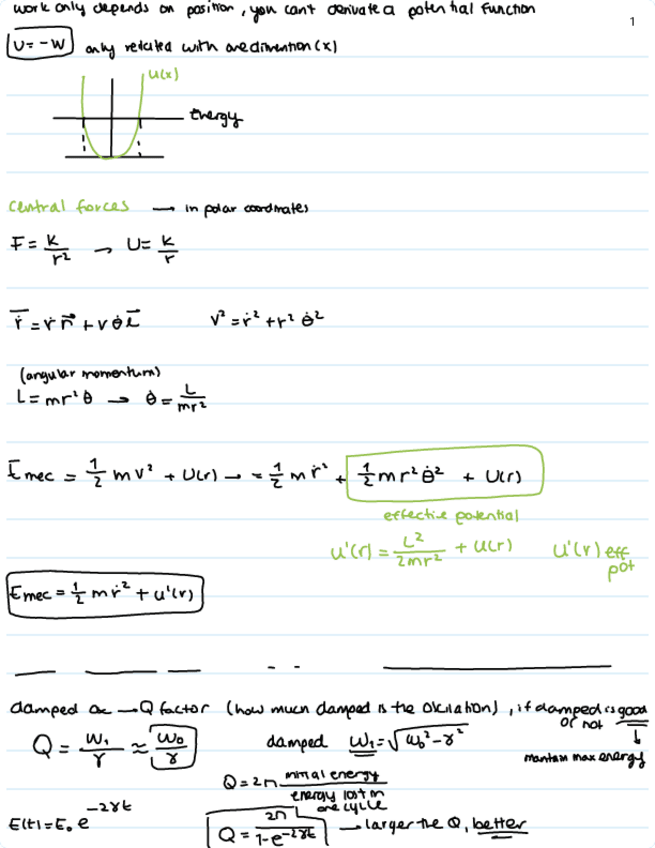 work only depends on position, you cant derivate a potential function
1
U = -W only related with one dimention (x)
U(x)
Energy
Central forces → in polar coordinates
F = k/r² → U = k/r
v² = ṙ² + r² θ̇²
(angular momentum)
L = mr² θ̇ → θ̇ = L/mr²
Emec = 1/2 m v² + U(r) → = 1/2 m ṙ² + 1/2 m r² θ̇² + U(r)
effective potential
U'(r) = L²/2mr² + U(r) U'(r) eff
pot
Emec = 1/2 m ṙ² + U'(r)
damped osc → Q factor (how much damped is the oscilation), if damped is good
or not
Q = ω₁/γ ≈ ω₀/γ damped ω₁ = √ω₀² - γ² ↓
mantain max energy
Q = 2π initial energy/energy lost in one cycle
E(t) = E₀ e^-2γt
Q = 2π/1-e^-2γt → larger the Q, better